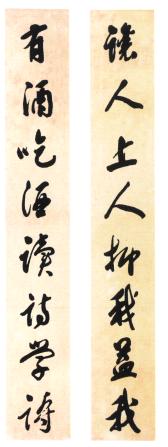 讓人上人抑我益我
有酒吃酒讀詩学詩